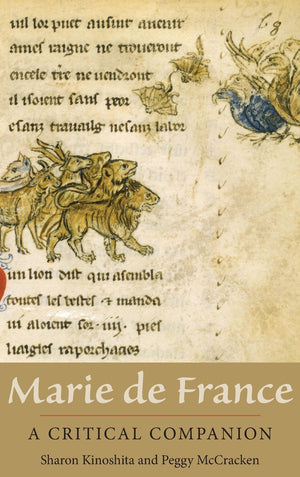 uil lor puet ausint auenir
ames ne troueront
encele tre ne uendront
il soient sanz peor
esanz trauaill nesanz labor
un lion dist qui asembla
toutes les bestes & manda
ui aloient sor .iiij. piez
Marie de France
A CRITICAL COMPANION
Sharon Kinoshita and Peggy McCracken